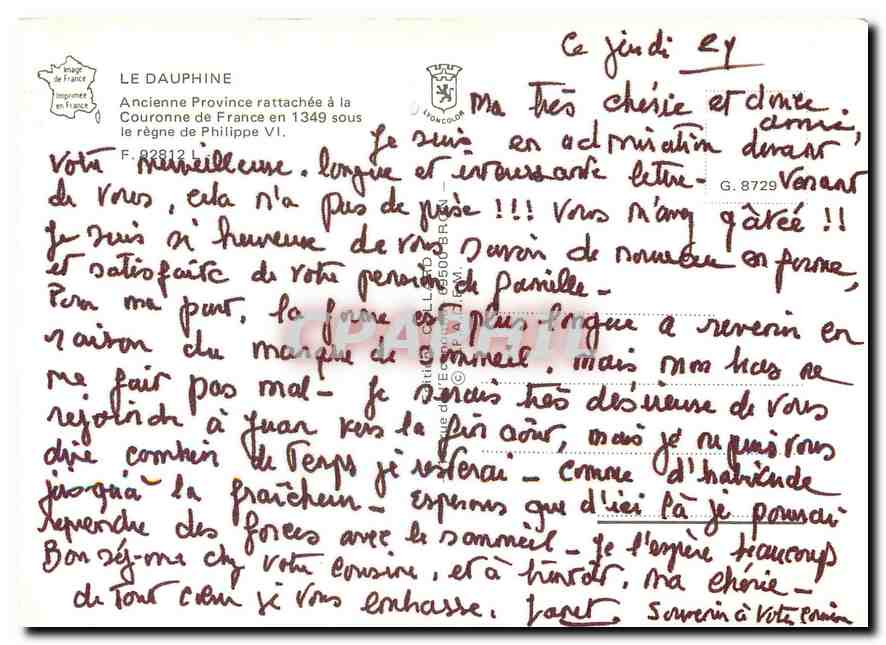 Ce jeudi 24
Image
de France
Imprimée
en France
LE DAUPHINE
Ancienne Province rattachée à la
Couronne de France en 1349 sous
le règne de Philippe VI.
F. 92812 L
LYONCOLOR
G. 8729
Ma très chérie et douce
amie,
Je suis en admiration devant
votre merveilleuse, longue et intéressante lettre - Venant
de vous, cela n'a pas de prise !!! Vous m'avez gâtée !!
Je suis si heureuse de vous savoir de nouveau en forme,
et satisfaite de votre pension de famille -
Pour ma part, la forme est plus longue à revenir en
raison du manque de sommeil, mais mon bras ne
me fait pas mal - Je serais très désireuse de vous
rejoindre à Juan vers la fin août, mais je ne puis vous
dire combien de temps je resterai - comme d'habitude
jusqu'à la fraîcheur - Espérons que d'ici là je pourrai
reprendre des forces avec le sommeil - Je l'espère beaucoup
Bon séjour chez votre cousine, et à bientôt, ma chérie -
de tout cœur je vous embrasse. Janet. Souvenir à votre cousine
69500 BRON
CPAPHIL